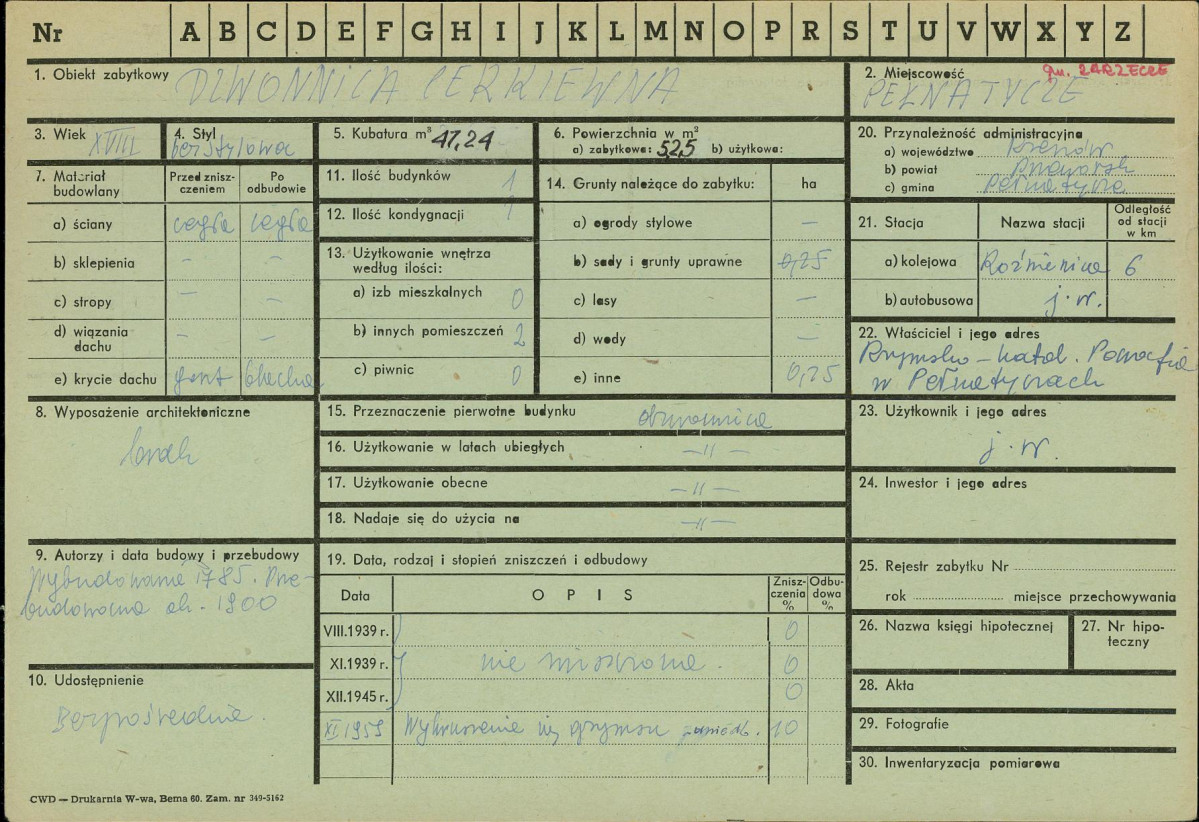 Nr A B C D E F G H I J K L M N O P R S T U V W X Y Z
1. Obiekt zabytkowy DZWONNICA CERKIEWNA
2. Miejscowość gm. ZARZECZE
PEŁNATYCZE
3. Wiek XVIII
4. Styl bezstylowa
5. Kubatura m³ 47,24
6. Powierzchnia w m²
a) zabytkowa: 52,5 b) użytkowa:
7. Materiał budowlany
Przed zniszczeniem
Po odbudowie
a) ściany cegła cegła
b) sklepienia – –
c) stropy – –
d) wiązania dachu – –
e) krycie dachu gont blacha
8. Wyposażenie architektoniczne
brak
9. Autorzy i data budowy i przebudowy
Wybudowanie 1785. Prze-
budowana ok. 1900
10. Udostępnienie
Bezpośrednie.
11. Ilość budynków 1
12. Ilość kondygnacji 1
13. Użytkowanie wnętrza
według ilości:
a) izb mieszkalnych 0
b) innych pomieszczeń 2
c) piwnic 0
14. Grunty należące do zabytku: ha
a) ogrody stylowe –
b) sady i grunty uprawne 0,25
c) lasy –
d) wody –
e) inne 0,25
15. Przeznaczenie pierwotne budynku dzwonnica
16. Użytkowanie w latach ubiegłych –"–
17. Użytkowanie obecne –"–
18. Nadaje się do użycia na –"–
19. Data, rodzaj i stopień zniszczeń i odbudowy
Data
OPIS
Zniszczenia %
Odbudowa %
VIII.1939 r. 0
XI.1939 r. nie niszczona. 0
XII.1945 r. 0
XI 1959 Wykruszenie się gzymsu 10
20. Przynależność administracyjna
a) województwo Rzeszów
b) powiat Przeworsk
c) gmina Pełnatycze
21. Stacja
Nazwa stacji
Odległość od stacji w km
a) kolejowa Roźwienica 6
b) autobusowa j.w.
22. Właściciel i jego adres
Rzymsko – katol. Parafia
w Pełnatyczach
23. Użytkownik i jego adres
j.w.
24. Inwestor i jego adres
25. Rejestr zabytku Nr
rok miejsce przechowywania
26. Nazwa księgi hipotecznej
27. Nr hipoteczny
28. Akta
29. Fotografie
30. Inwentaryzacja pomiarowa
CWD — Drukarnia W-wa, Bema 60. Zam. nr 349-5162